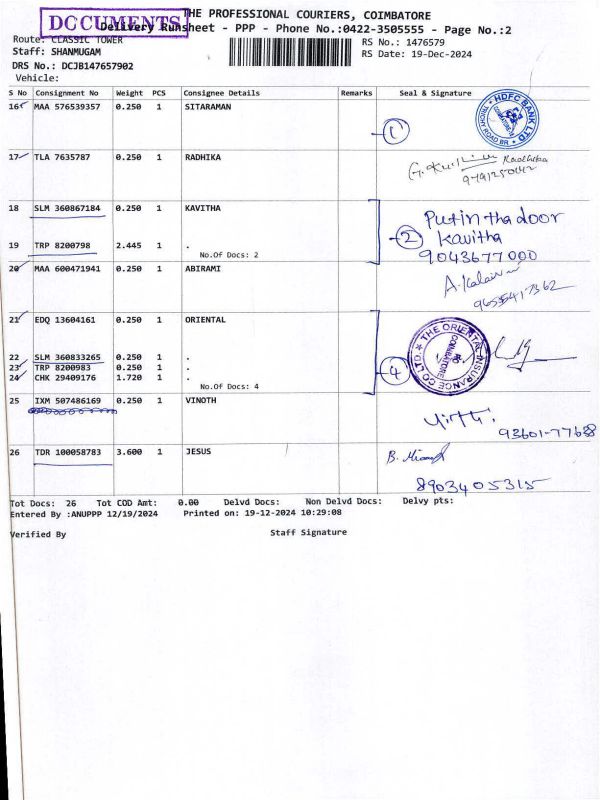 DOCUMENTS
THE PROFESSIONAL COURIERS, COIMBATORE
Delivery Runsheet - PPP - Phone No.:0422-3505555 - Page No.:2
Route: CLASSIC TOWER
RS No.: 1476579
Staff: SHANMUGAM
RS Date: 19-Dec-2024
DRS No.: DCJB147657902
Vehicle:
S No Consignment No Weight PCS Consignee Details Remarks Seal & Signature
16 MAA 576539357 0.250 1 SITARAMAN
1
HDFC BANK LTD
TRICHY ROAD BR
17 TLA 7635787 0.250 1 RADHIKA
Radhika
9791250042
18 SLM 360867184 0.250 1 KAVITHA
Put in tha door
19 TRP 8200798 2.445 1 .
2 kavitha
No.Of Docs: 2
9043677000
20 MAA 600471941 0.250 1 ABIRAMI
9655417362
21 EDQ 13604161 0.250 1 ORIENTAL
THE ORIENTAL INSURANCE CO LTD.
COIMBATORE
22 SLM 360833265 0.250 1 .
23 TRP 8200983 0.250 1 .
24 CHK 29409176 1.720 1 .
4
No.Of Docs: 4
25 IXM 507486169 0.250 1 VINOTH
93601-77688
26 TDR 100058783 3.600 1 JESUS
8903405315
Tot Docs: 26 Tot COD Amt: 0.00 Delvd Docs: Non Delvd Docs: Delvy pts:
Entered By :ANUPPP 12/19/2024 Printed on: 19-12-2024 10:29:08
Verified By Staff Signature